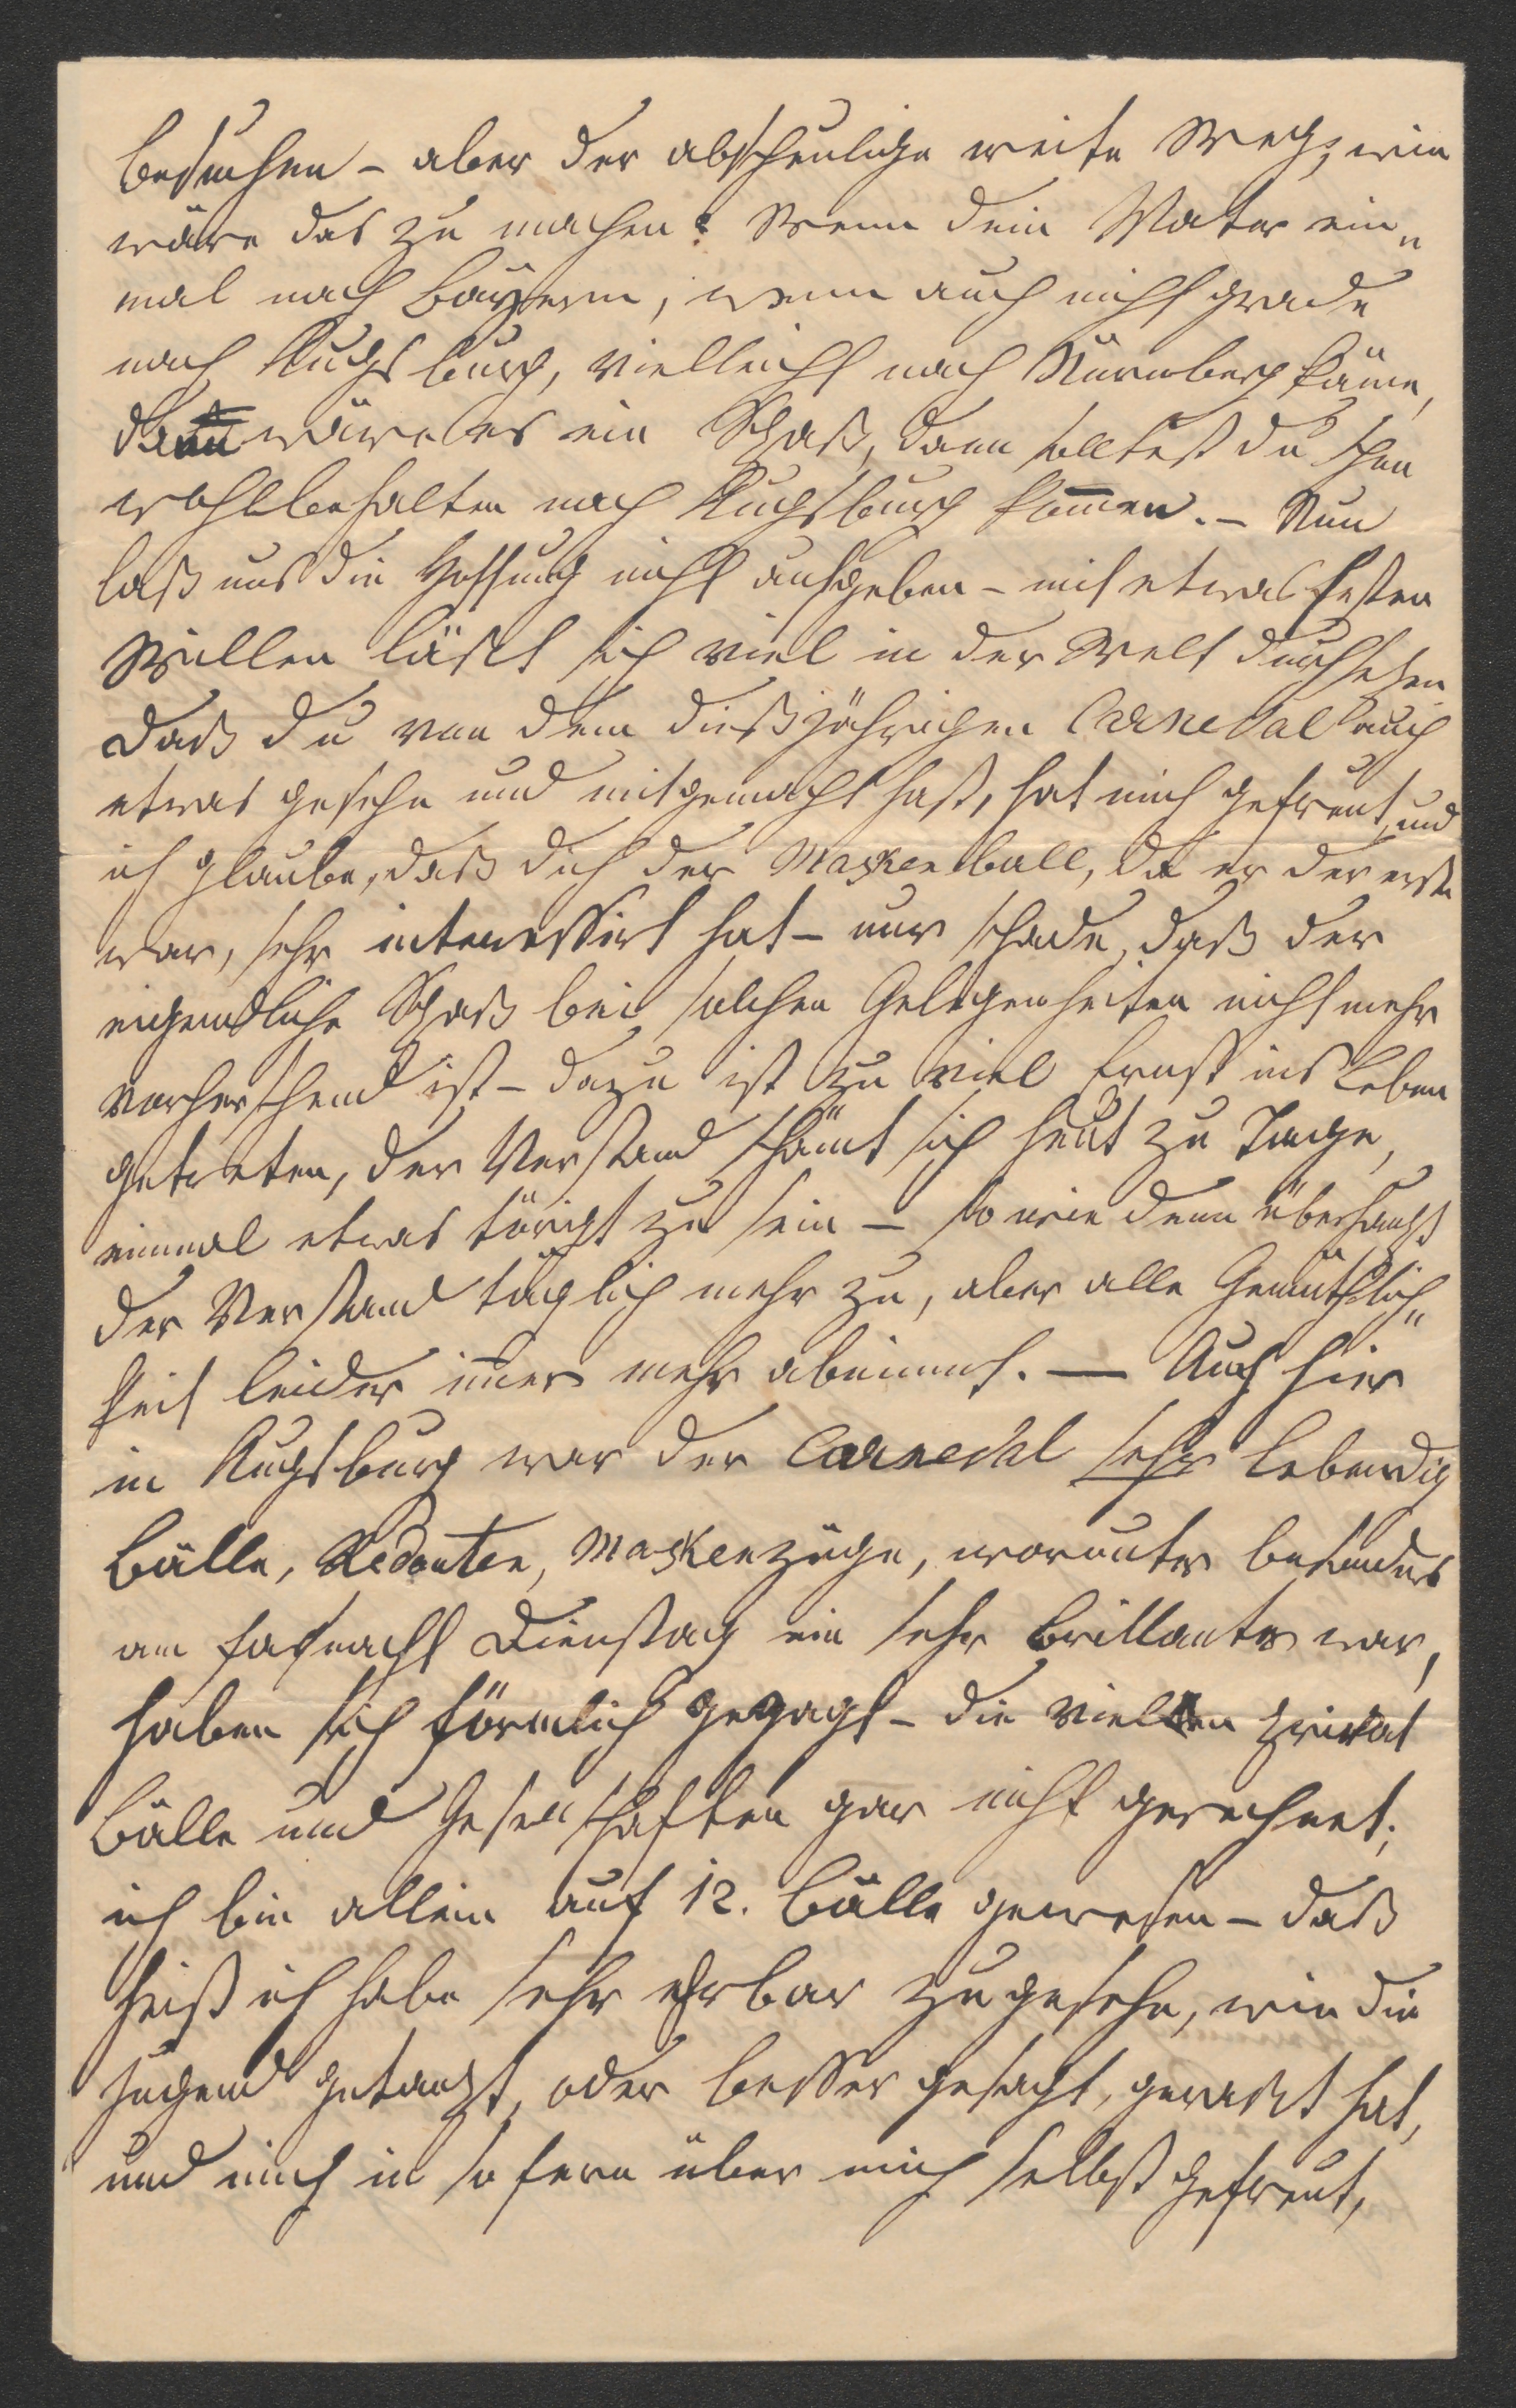 besuchen – aber der abscheuliche weite Weg, wie
wäre das zu machen? Wenn dein Vater ein„
mal nach Bayern, wenn auch nicht grade
nach Augsburg, vielleicht nach Nürnberg käme,
dann wäre es ein Spaß, dann solltest du schon
wohlbehalten nach Augsburg kom̄en. – Nun
laß uns die Hoffnung nicht aufgeben – mit etwas festen
Willen läßt sich viel in der Welt durchsetzen
Daß du von dem dießjährigen Carneval auch
etwas gesehn und mitgemacht hast, hat mich gefreut, und
ich glaube, daß dich der Maskenball, da er der erste
war, sehr interessirt hat – nur schade, daß der
eigendliche Spaß bei solchen Gelegenheiten nicht mehr
vorherschend ist – dazu ist zu viel Ernst ins Leben
getreten, der Verstand schämt sich heut zu Tage,
einmal etwas törigt zu sein – so wie denn überhaupt
der Verstand täglich mehr zu, aber alle Gemüthlich„
keit leider im̄er mehr abnimmt. — Auch hier
in Augsburg war der Carneval sehr lebendig
Bälle, Redouten, Maskenzüge, worunter besonders
am Fasnacht Dienstag ein sehr brillanter war,
haben sich förmlich gejagt – die vielen Privat
Bälle und Gesellschaften gar nicht gerechnet;
ich bin allein auf 12. Bälle gewesen – daß
heißt ich habe sehr ehrbar zugesehn, wie die
Jugend getanzt, oder besser gesagt, gerast hat,
und mich in so fern über mich selbst gefreut,